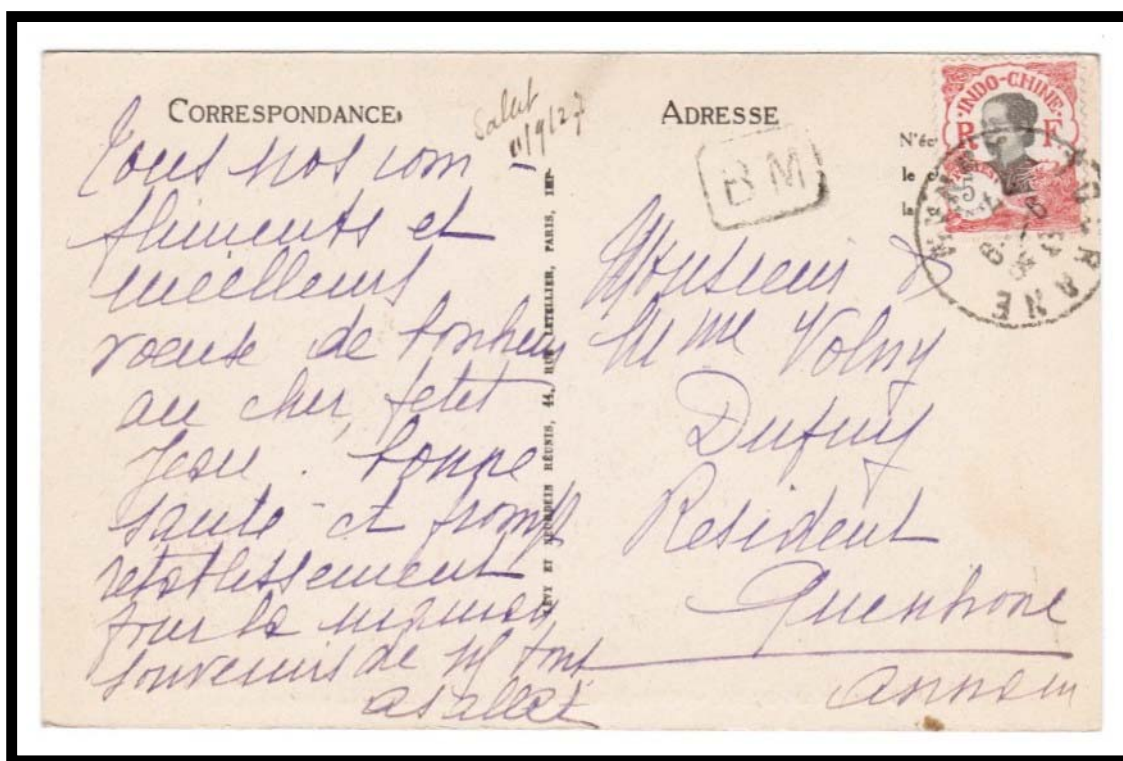 CORRESPONDANCE
Salut
11/9/27
Tous nos com-
pliments et
meilleurs
voeux de bonheur
au cher petit
Jesu. bonne
santé et prompt
retablissement
pour la maman
souvenirs de
ASallet
LEVY ET NEURDEIN RÉUNIS, 44, RUE LETELLIER, PARIS, IMP.
ADRESSE
N'éc
le c
la
BM
INDO-CHINE
R F
5
TOURANE
ANNAM
Monsieur &
Mme Volny
Dupuy
Resident
Quinhone
Annam